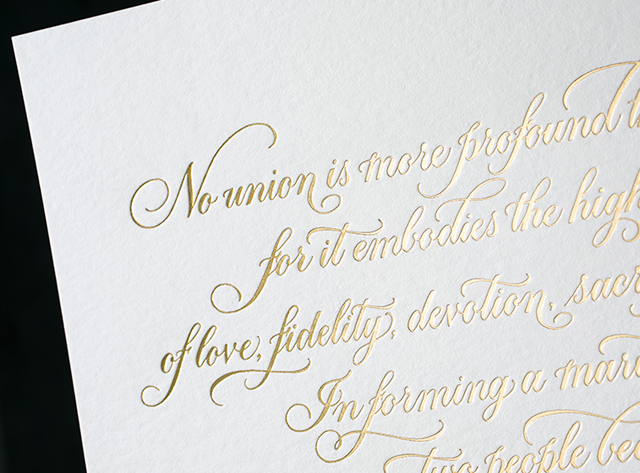 No union is more profound t
for it embodies the high
of love, fidelity, devotion, sacr
In forming a mar
two people be